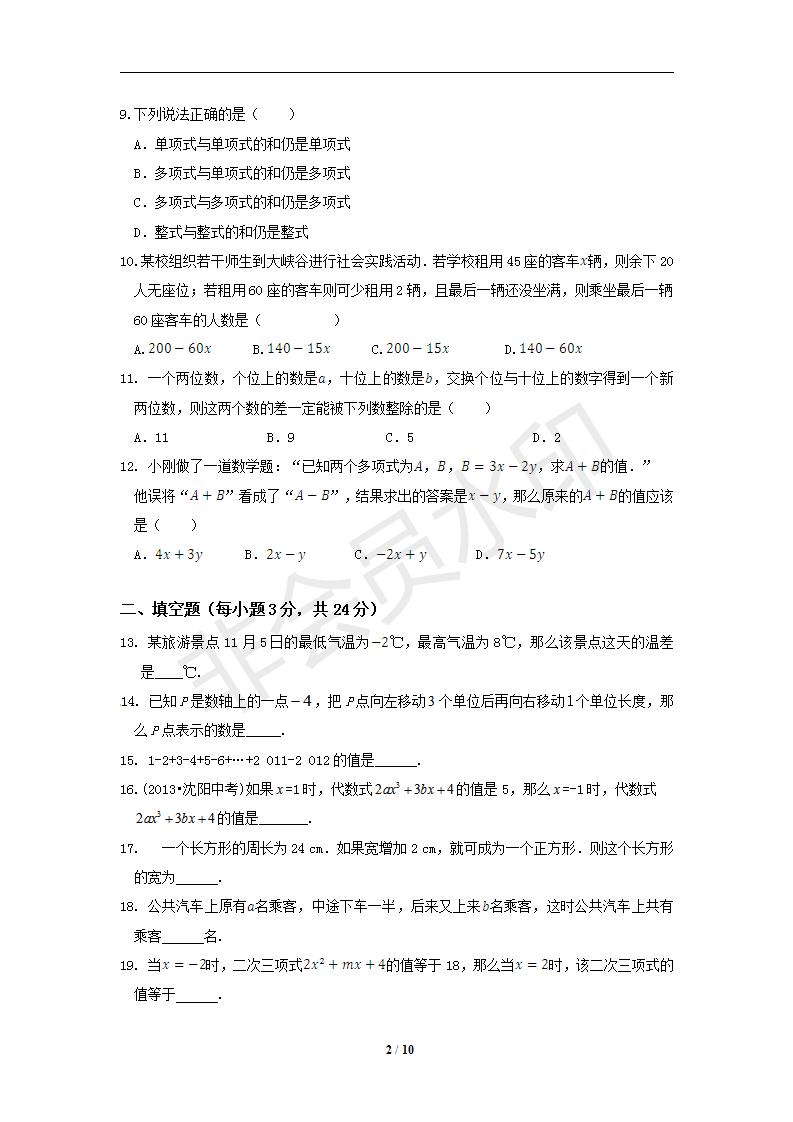 9.下列说法正确的是（　　）
A．单项式与单项式的和仍是单项式
B．多项式与单项式的和仍是多项式
C．多项式与多项式的和仍是多项式
D．整式与整式的和仍是整式
10.某校组织若干师生到大峡谷进行社会实践活动．若学校租用 45 座的客车x辆，则余下 20
人无座位；若租用 60 座的客车则可少租用 2 辆，且最后一辆还没坐满，则乘坐最后一辆
60 座客车的人数是（　　　）
A.200－60x B.140－15x C.200－15x D.140－60x
11. 一个两位数，个位上的数是a，十位上的数是b，交换个位与十位上的数字得到一个新
两位数，则这两个数的差一定能被下列数整除的是（　　）
A．11 B．9 C．5 D．2
12. 小刚做了一道数学题：“已知两个多项式为A，B，B = 3x − 2y，求A + B的值．”
他误将“A + B”看成了“A − B”，结果求出的答案是x − y，那么原来的A + B的值应该
是（　　）
A．4x + 3y B．2x − y C．−2x + y D．7x − 5y
二、填空题（每小题 3 分，共 24 分）
13. 某旅游景点 11 月 5 日的最低气温为−2℃，最高气温为 8℃，那么该景点这天的温差
是____℃.
14. 已知 P 是数轴上的一点−4，把 P 点向左移动 3 个单位后再向右移动 1 个单位长度，那
么 P 点表示的数是_____.
15. 1-2+3-4+5-6+…+2 011-2 012 的值是______.
16.(2013•沈阳中考)如果 x=1 时，代数式 2ax³+3bx+4 的值是 5，那么 x=-1 时，代数式
2ax³+3bx+4 的值是_______.
17. 一个长方形的周长为 24 cm．如果宽增加 2 cm，就可成为一个正方形．则这个长方形
的宽为______.
18. 公共汽车上原有a名乘客，中途下车一半，后来又上来b名乘客，这时公共汽车上共有
乘客______名.
19. 当x = −2时，二次三项式2x² + mx + 4的值等于 18，那么当x = 2时，该二次三项式的
值等于______.
2 / 10
非会员水印